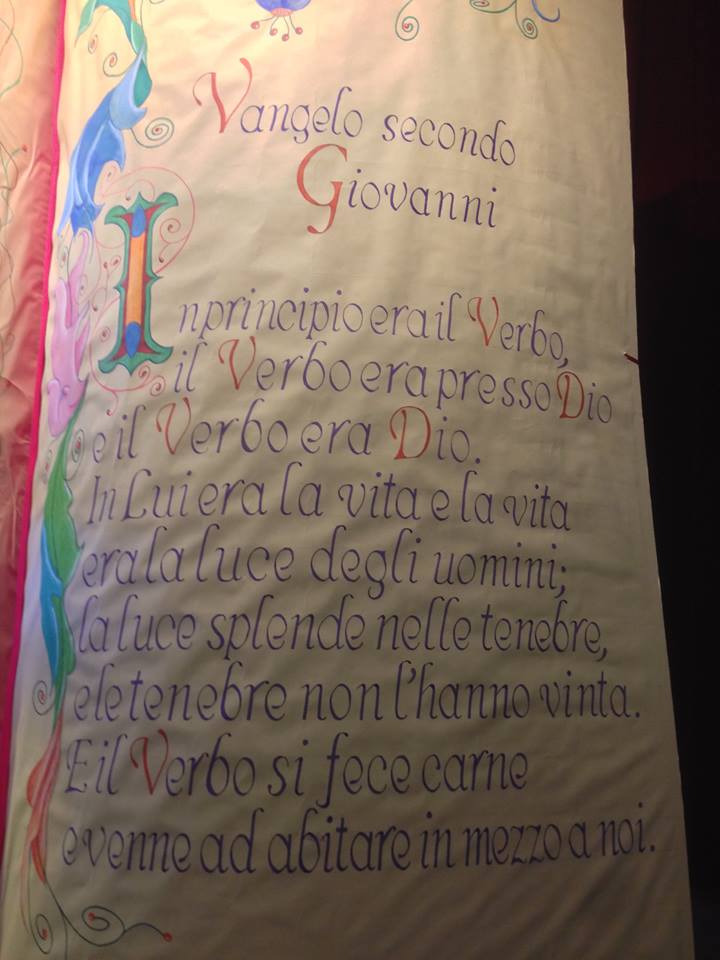 Vangelo secondo
Giovanni
In principio era il Verbo,
il Verbo era presso Dio
e il Verbo era Dio.
In Lui era la vita e la vita
era la luce degli uomini;
la luce splende nelle tenebre,
e le tenebre non l'hanno vinta.
E il Verbo si fece carne
e venne ad abitare in mezzo a noi.